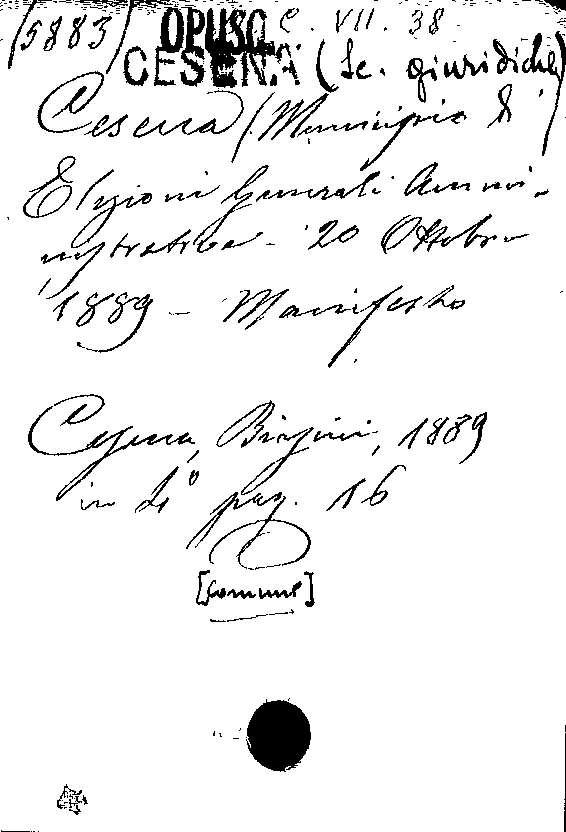 (5883) OPUSC. C. VII. 38
CESENA (Sc. giuridiche)
Cesena (Municipio di)
Elezioni Generali Ammi-
nistrative - 20 Ottobre
1889 - Manifesto
Cesena, Biasini, 1889
in 4° pag. 16
[Comune]